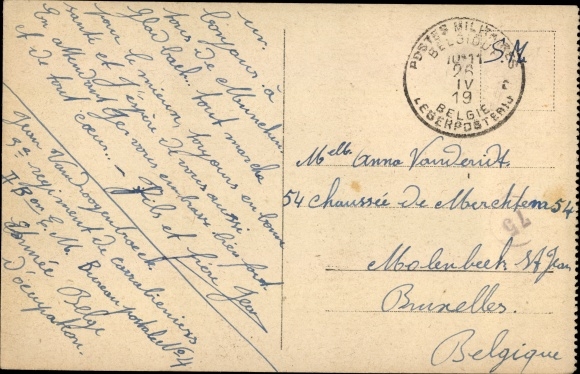 un
bonjour à
tous de München
Gladbach. tout marche
pour le mieux, toujours en bonne
santé et j'espère de vous aussi
En attendant je vous embrasse bien fort
et de tout cœur. — fils et frère Jean
Jean Vandroogenbroeck
3me regiment de carabiniers
II B on E. M. Bureau postale No 4
Armée Belge
d'occupation.
POSTES MILITAIRES
BELGIQUE
26
IV
19
BELGIE
LEGERPOSTERIJ
S.M.
Melle Anna Vanderidt
54 chaussée de Merchtem 54
75
Molenbeek St Jean
Bruxelles
Belgique